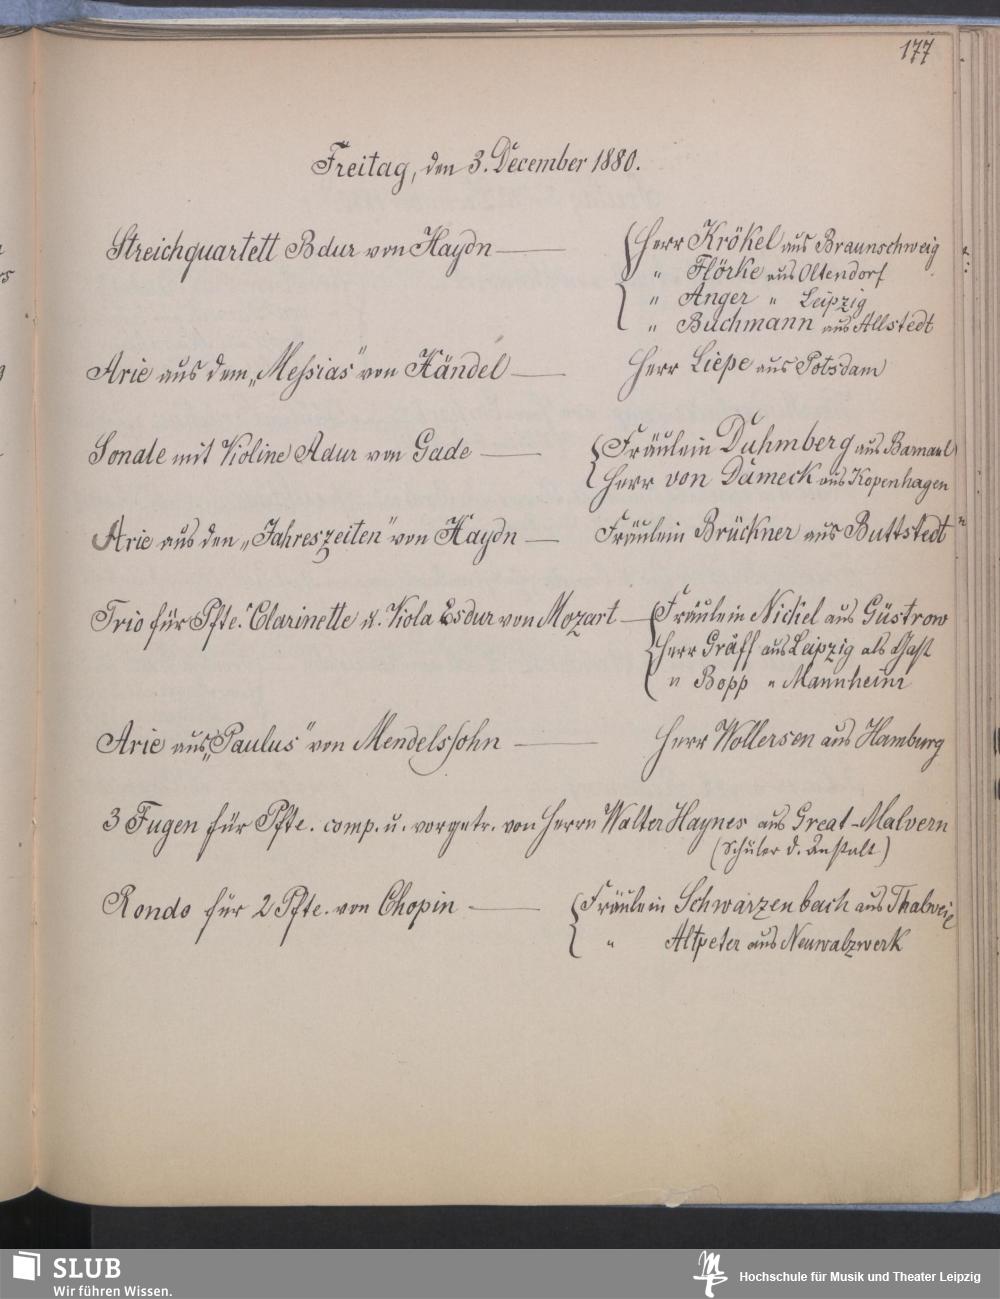 177
Freitag, den 3. December 1880.
Streichquartett Bdur von Haydn — Herr Krökel aus Braunschweig
" Flörke aus Oltendorf
" Anger " Leipzig
" Bachmann aus Allstedt
Arie aus dem „Messias" von Händel — Herr Liepe aus Potsdam
Sonate mit Violine Adur von Gade — Fräulein Duhmberg aus Barnaul
Herr von Dameck aus Kopenhagen
Arie aus den „Jahreszeiten" von Haydn — Fräulein Brückner aus Buttstedt
Trio für Pfte. Clarinette u. Viola Esdur von Mozart — Fräulein Nickel aus Güstrow
Herr Gräff aus Leipzig als Gast
" Bopp " Mannheim
Arie aus „Paulus" von Mendelssohn — Herr Wollersen aus Hamburg
3 Fugen für Pfte. comp. u. vorgetr. von Herrn Walter Haynes aus Great-Malvern
(Schüler d. Anstalt)
Rondo für 2 Pfte. von Chopin — Fräulein Schwarzenbach aus Thalweil
" Altpeter aus Neuwalzwerk
SLUB
Wir führen Wissen.
Hochschule für Musik und Theater Leipzig